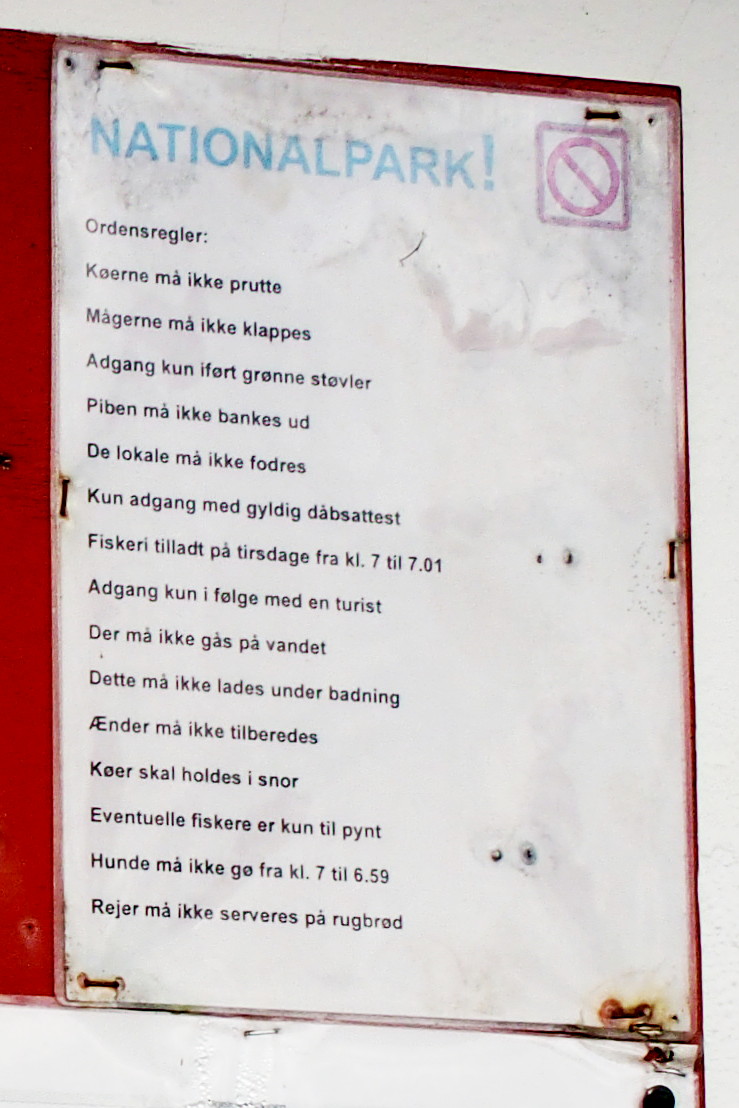 NATIONALPARK!
Ordensregler:
Køerne må ikke prutte
Mågerne må ikke klappes
Adgang kun iført grønne støvler
Piben må ikke bankes ud
De lokale må ikke fodres
Kun adgang med gyldig dåbsattest
Fiskeri tilladt på tirsdage fra kl. 7 til 7.01
Adgang kun i følge med en turist
Der må ikke gås på vandet
Dette må ikke lades under badning
Ænder må ikke tilberedes
Køer skal holdes i snor
Eventuelle fiskere er kun til pynt
Hunde må ikke gø fra kl. 7 til 6.59
Rejer må ikke serveres på rugbrød